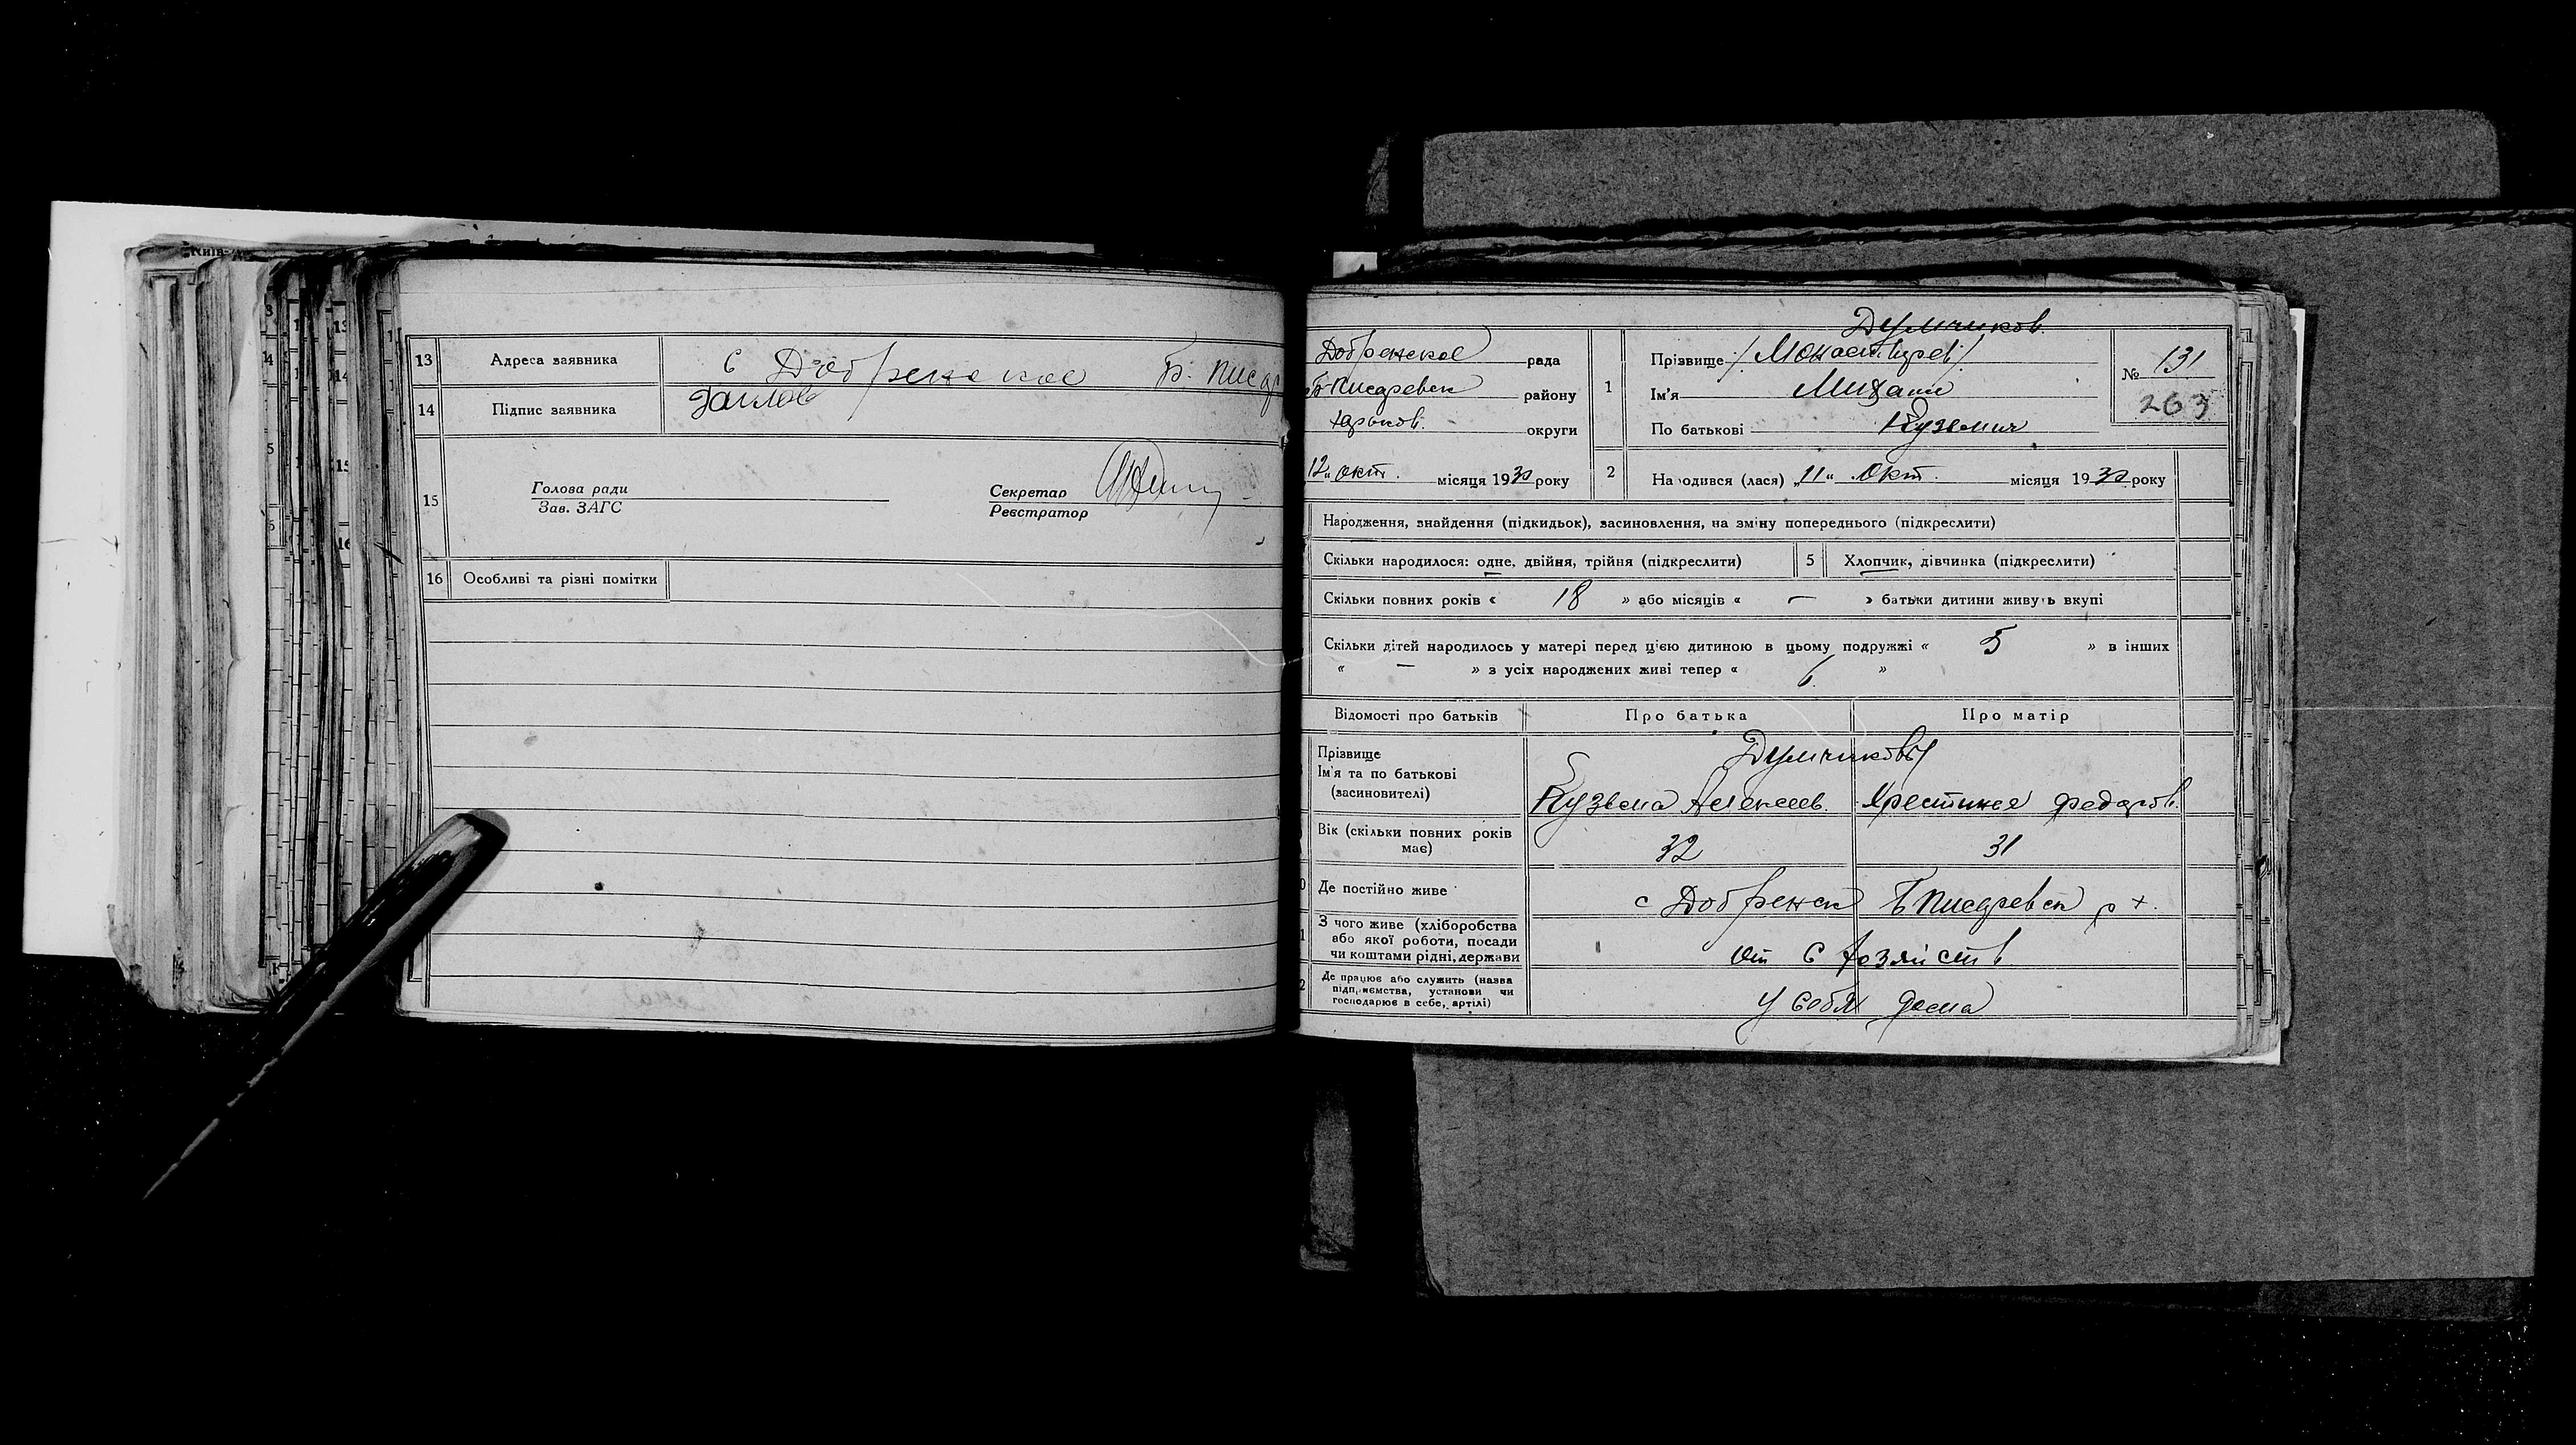 13 Адреса заявника с Добренское Б. Писар
14 Підпис заявника
15 Голова ради
Зав. ЗАГС
Секретар
Реєстратор
16 Особливі та різні помітки
Думчиков.
Добренское рада
Б-Писаревск району
Харьков. округи
12 „ окт. місяця 1930 року
1 Прізвище /Монастырев/
Ім'я Михаил
По батькові Кузьмич
№ 131
263
2 На одився (лася) „11 “ Окт. місяця 1930 року
Народження, знайдення (підкидьок), засиновлення, на зміну попереднього (підкреслити)
Скільки народилося: одне, двійня, трійня (підкреслити) 5 Хлопчик, дівчинка (підкреслити)
Скільки повних років « 18 » або місяців « — » батьки дитини живуть вкупі
Скільки дітей народилось у матері перед цією дитиною в цьому подружжі « 5 » в інших
« — » з усіх народжених живі тепер « 6 »
Відомості про батьків Про батька Про матір
Прізвище
Ім'я та по батькові
(засиновителі)
Думчиковы
Кузьма Алексеев. Хрестинья Федоров.
Вік (скільки повних років
має)
32 31
Де постійно живе с Добренск Б Писаревск р х.
З чого живе (хліборобства
або якої роботи, посади
чи коштами рідні, держави
от с хозяйств
Де працює або служить (назва
підприємства, установи чи
господарює в себе, артілі)
у собя дома